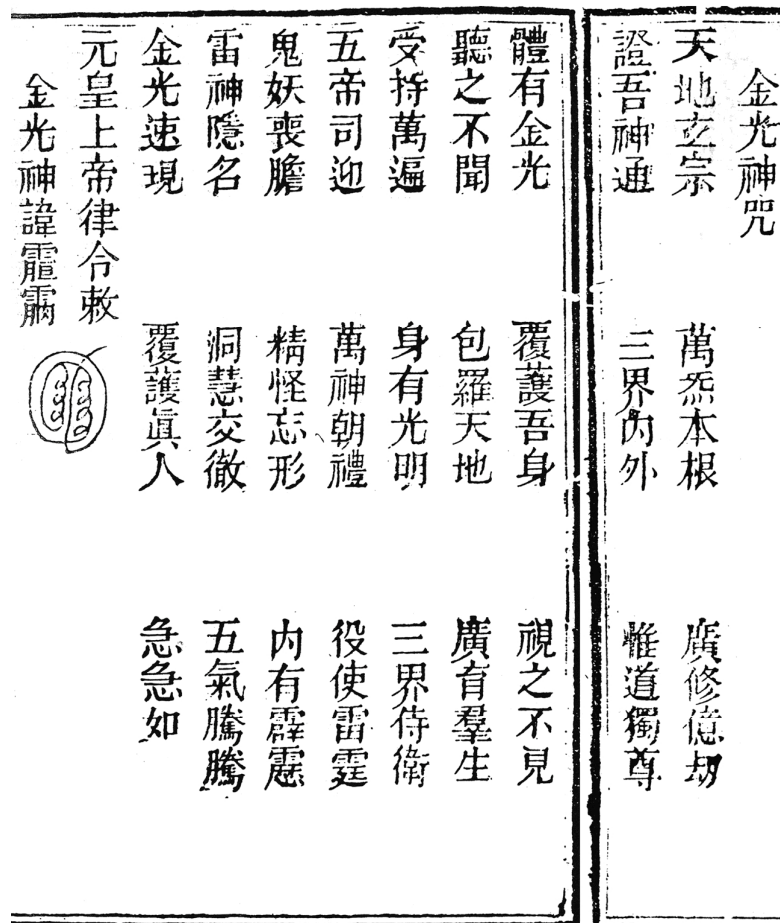 金光神咒
天地玄宗 萬炁本根 廣修億劫
證吾神通 三界內外 惟道獨尊
體有金光 覆護吾身 視之不見
聽之不聞 包羅天地 廣育羣生
受持萬遍 身有光明 三界侍衛
五帝司迎 萬神朝禮 役使雷霆
鬼妖喪膽 精怪忘形 內有霹靂
雷神隱名 洞慧交徹 五氣騰騰
金光速現 覆護眞人 急急如
元皇上帝律令敕
金光神諱